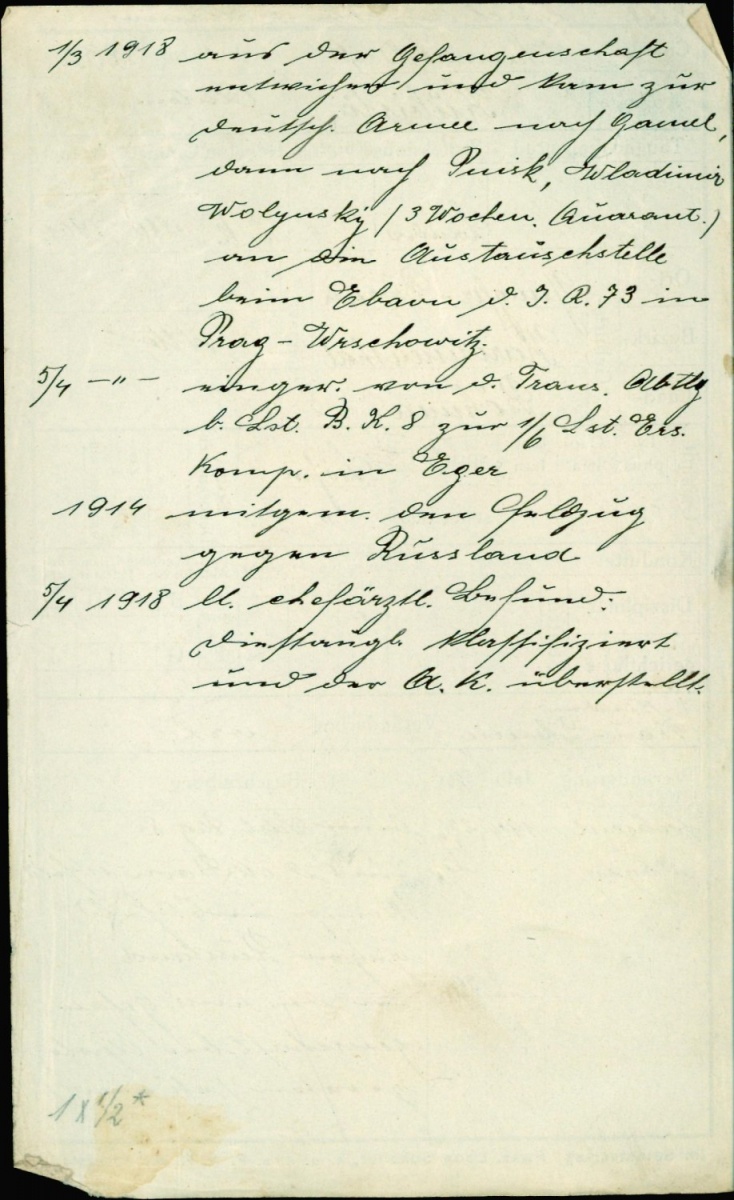 1/3 1918 aus der Gefangenschaft
entwichen und kam zur
deutsch. Armee nach Gomel,
dann nach Pinsk, Wladimir
Wolynskÿ / 3 Wochen. Quarant.)
an die Austauschstelle
beim Ebaon d. I. R. 73 in
Prag – Wrschowitz.
5/4 –„– einger. von d. Trans. Abtlg
b. Lst. B. K. 8 zur 1/6 Lst. Ers.
Komp. in Eger
1914 mitgem. den Feldzug
gegen Russland
5/4 1918 lt. chefärztl. Befund:
diensttaugl. klassifiziert
und der A. K. überstellt.
1 x 1/2 *